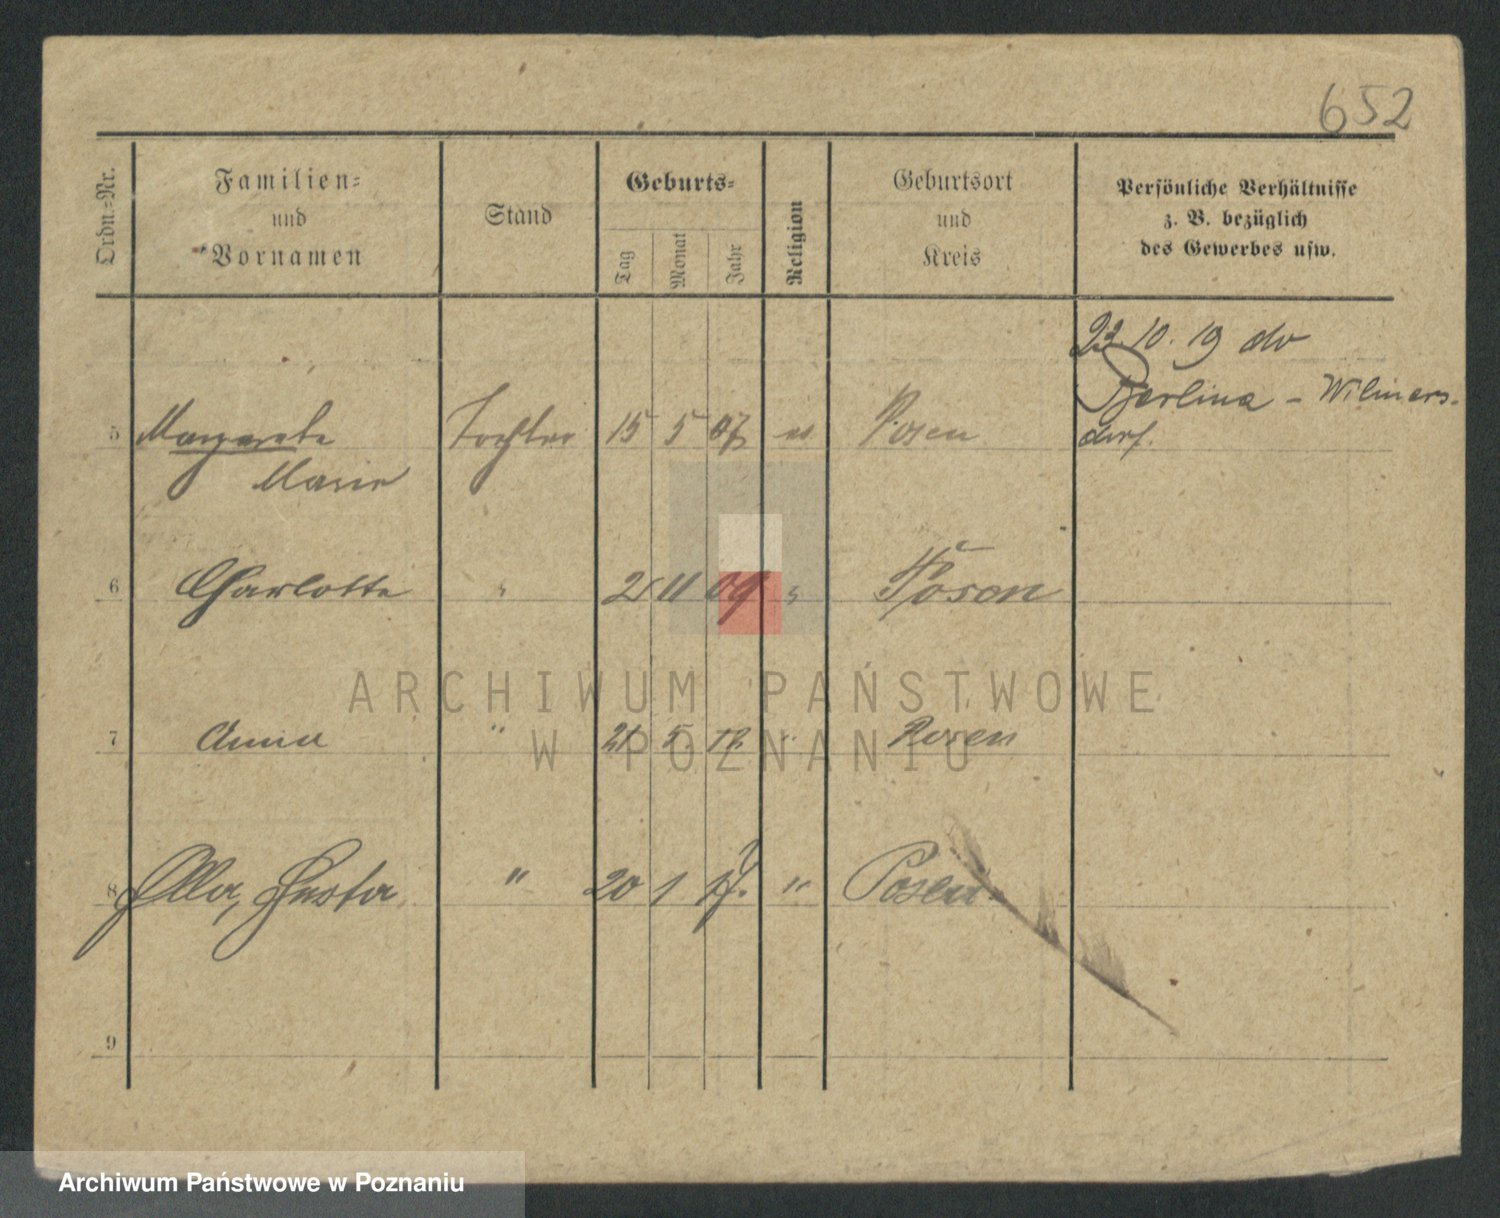 652
Ordn.-Nr.
Familien-
und
Vornamen
Stand
Geburts-
Tag
Monat
Jahr
Religion
Geburtsort
und
Kreis
Persönliche Verhältnisse
z. B. bezüglich
des Gewerbes usw.
23.10.19 do
Berlina - Wilmers-
dorf.
5 Margarete Tochter 15 5 07 Posen
Marie
6 Charlotte " 21 11 09 " Posen
7 Anna " 21 5 12 " Posen
8 Ella, Gusta " 20 1 17. " Posen
9
ARCHIWUM PAŃSTWOWE
W POZNANIU
Archiwum Państwowe w Poznaniu